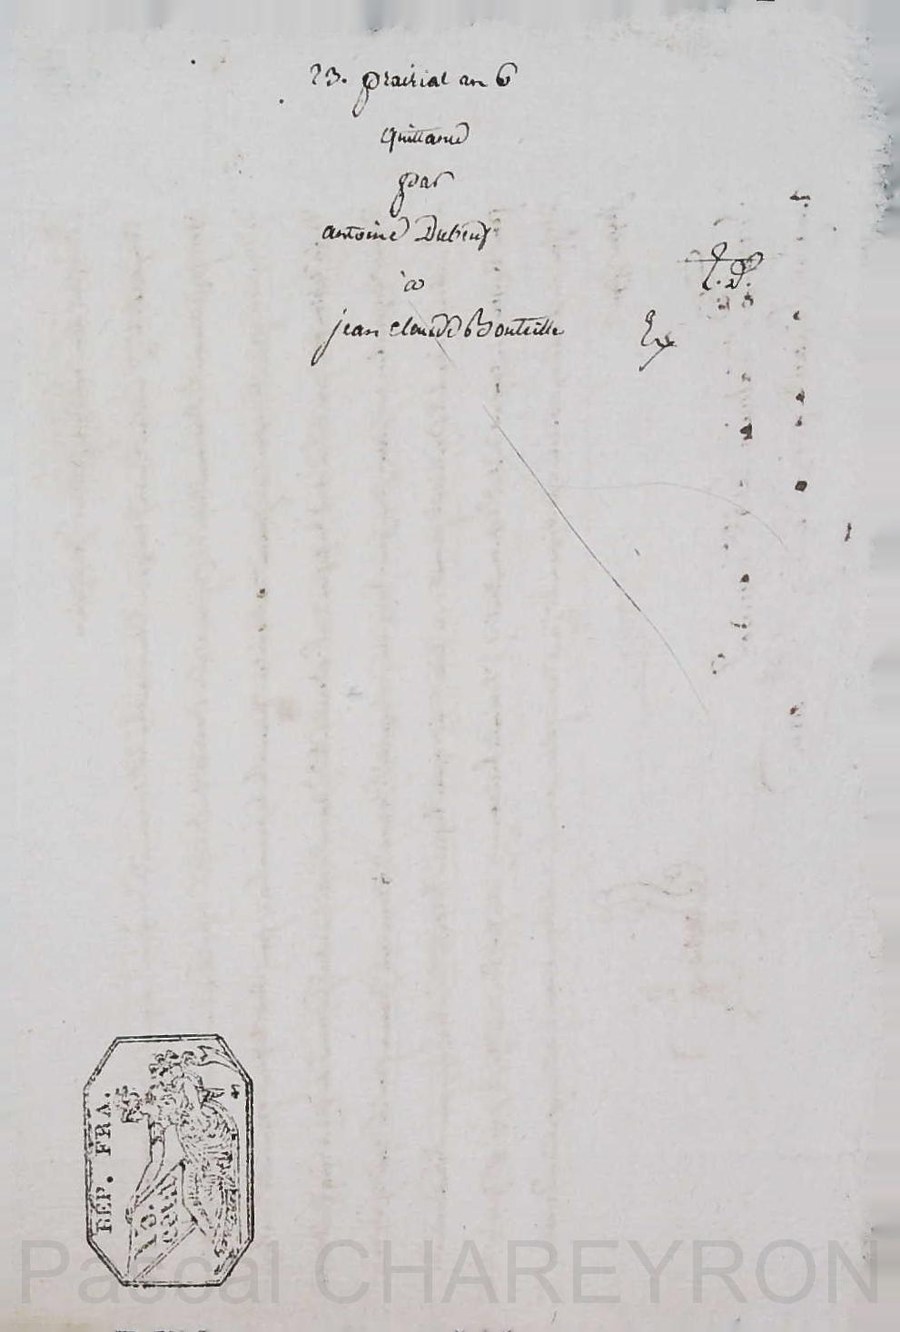 23. prairial an 6
quittance
par
antoine Dubeuf
à
jean claude Bouteille
Ex
REP. FRA.
Pascal CHAREYRON